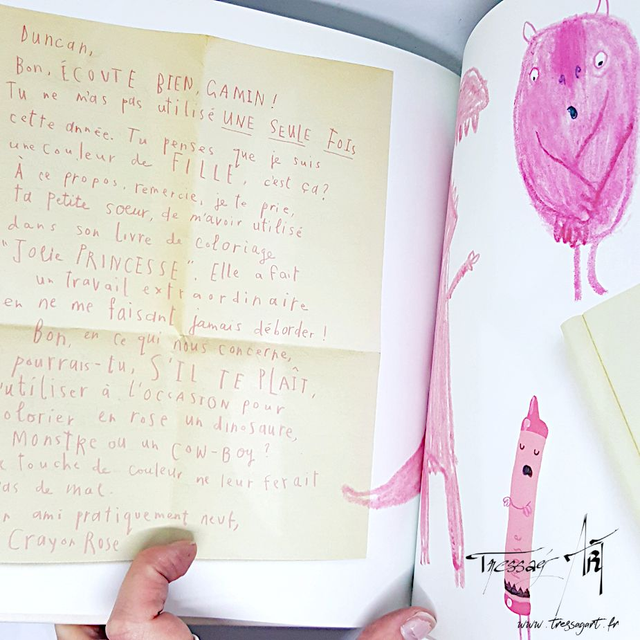 Duncan,
Bon, ÉCOUTE BIEN, GAMIN !
Tu ne m'as pas utilisé UNE SEULE FOIS
cette année. Tu penses que je suis
une couleur de FILLE, c'est ça ?
À ce propos, remercie, je te prie,
ta petite soeur, de m'avoir utilisé
dans son livre de coloriage
"JOLIE PRINCESSE". Elle a fait
un travail extraordinaire
en ne me faisant jamais déborder !
Bon, en ce qui nous concerne,
pourrais-tu, S'IL TE PLAÎT,
utiliser à l'occasion pour
colorier en rose un dinosaure,
monstre ou un cow-boy ?
touche de couleur ne leur ferait
pas de mal.
ami pratiquement neuf,
Crayon Rose
Tressag'Art
www.tressagart.fr